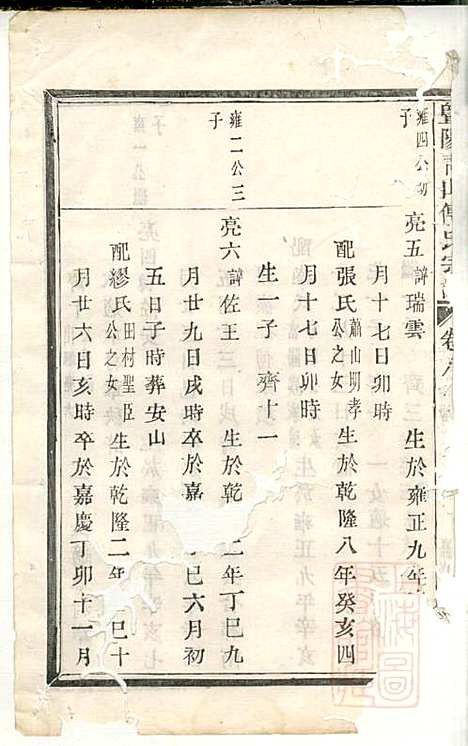 雍四公初子
亮五諱瑞雲 生於雍正九年
月十七日卯時
配張氏蕭山明孝公之女生於乾隆八年癸亥四
月十七日卯時
生一子 齊十一
雍二公三子
亮六諱佐王 生於乾 二年丁巳九
月廿九日戌時卒於嘉 巳六月初
五日子時葬安山
配繆氏田村聖臣公之女生於乾隆二年 巳十
月廿六日亥時卒於嘉慶丁卯十一月